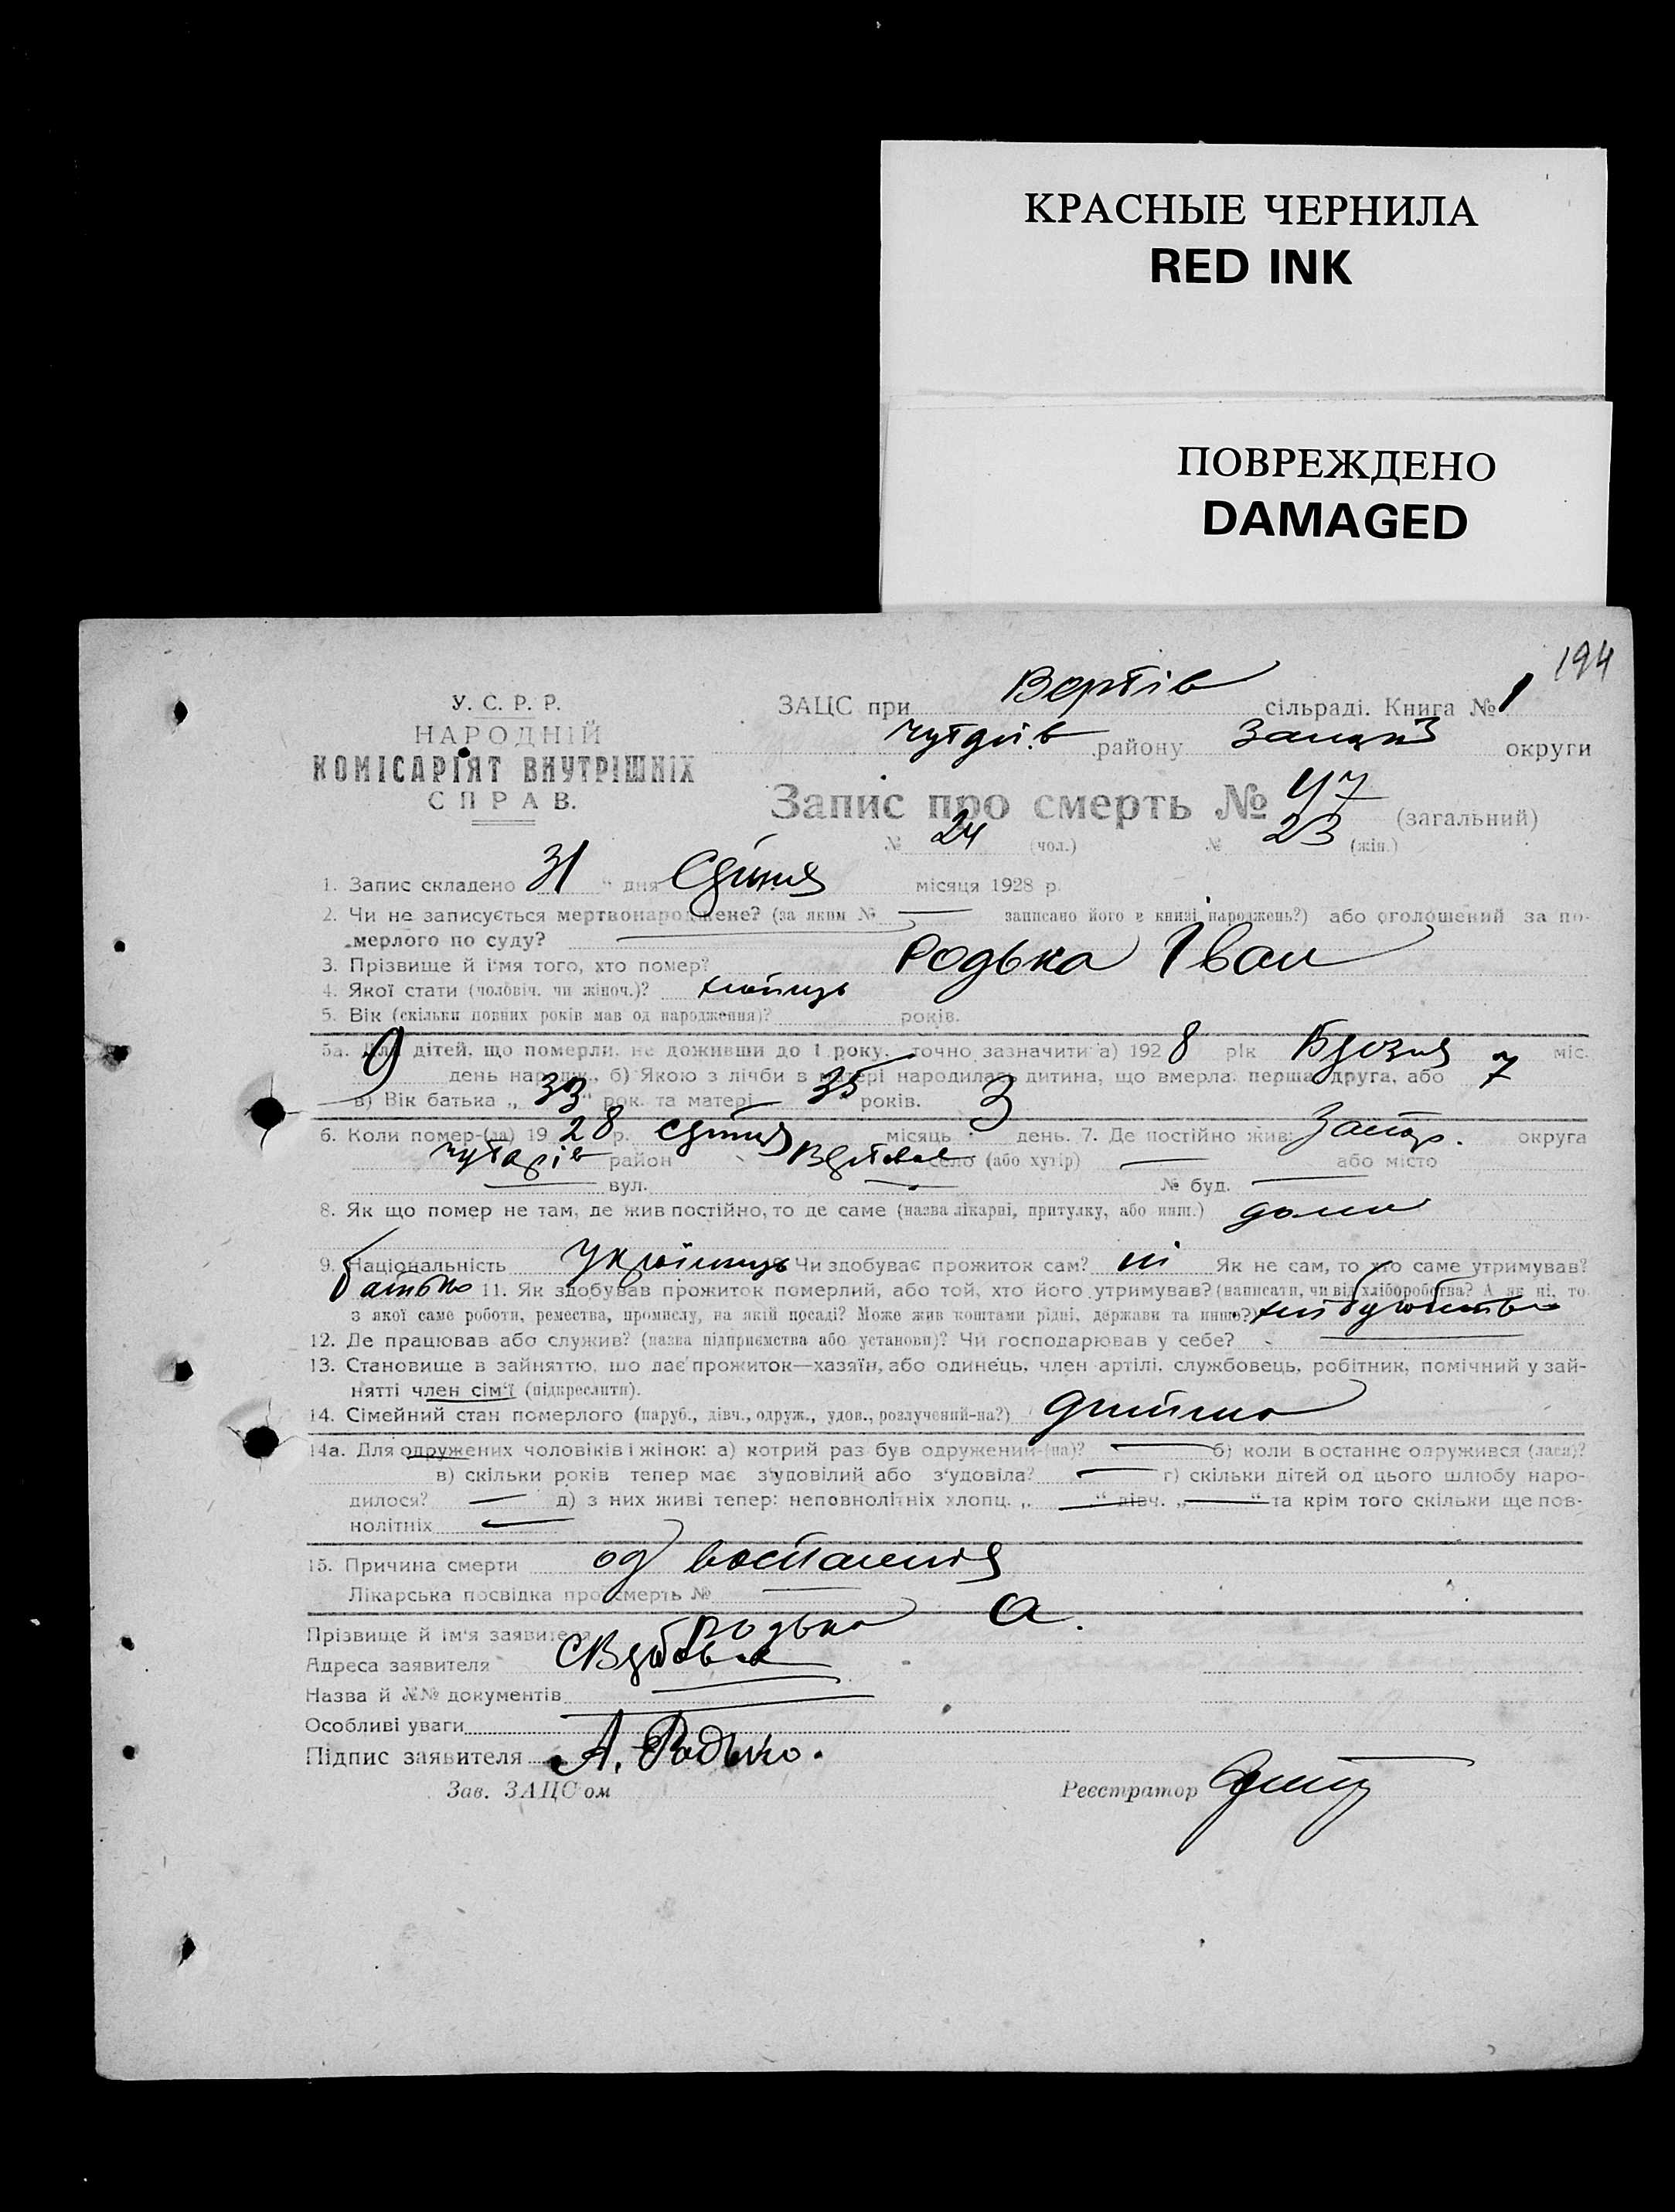 КРАСНЫЕ ЧЕРНИЛА
RED INK
ПОВРЕЖДЕНО
DAMAGED
194
У. С. Р. Р.
НАРОДНІЙ
КОМІСАРІЯТ ВНУТРІШНІХ
СПРАВ.
ЗАЦС при Вертів сільраді. Книга № 1
району округи
Запис про смерть № 47 (загальний)
№ 24 (чол.) № 23 (жін.)
1. Запис складено 31 " дня Січня місяця 1928 р.
2. Чи не записується мертвонароджене? (за яким № — записано його в книзі народжень?) або оголошений за по-
мерлого по суду?
3. Прізвище й ім'я того, хто помер? Родька Іван
4. Якої стати (чоловіч. чи жіноч.)?
5. Вік (скільки повних років мав од народження)? років.
5а. Для дітей, що померли, не доживши до 1 року, точно зазначити а) 1928 рік міс.
9 день народж., б) Якою з лічби в матері народилась дитина, що вмерла: перша, друга, або 7
в) Вік батька „ 33 " рок. та матері 35 років.
6. Коли помер-(ла) 1928 р. січня місяць 3 день. 7. Де постійно жив: округа
район село (або хутір) — або місто
вул. № буд. —
8. Як що помер не там, де жив постійно, то де саме (назва лікарні, притулку, або инш.) дома
9. Національність Українець Чи здобуває прожиток сам? ні Як не сам, то хто саме утримував?
батько 11. Як здобував прожиток померлий, або той, хто його утримував? (написати, чи від хліборобства? А як ні, то
з якої саме роботи, ремества, промислу, на якій посаді? Може жив коштами рідні, держави та инше?)
12. Де працював або служив? (назва підприємства або установи)? Чи господарював у себе?
13. Становище в зайняттю, що дає прожиток—хазяїн, або одинець, член артілі, службовець, робітник, помічний у зай-
нятті член сім'ї (підкреслити).
14. Сімейний стан померлого (паруб., дівч., одруж., удов., розлучений-на?)
14а. Для одружених чоловіків і жінок: а) котрий раз був одружений-(на)? — б) коли в останнє одружився (лася)?
в) скільки років тепер має з'удовілий або з'удовіла? — г) скільки дітей од цього шлюбу наро-
дилося? — д) з них живі тепер: неповнолітніх хлопц. „ — " дівч. „ — " та крім того скільки ще пов-
нолітніх —
15. Причина смерти од воспаления
Лікарська посвідка про смерть № —
Прізвище й ім'я заявителя Родько А.
Адреса заявителя
Назва й №№ документів
Особливі уваги
Підпис заявителя А. Радько.
Зав. ЗАЦС'ом Реєстратор